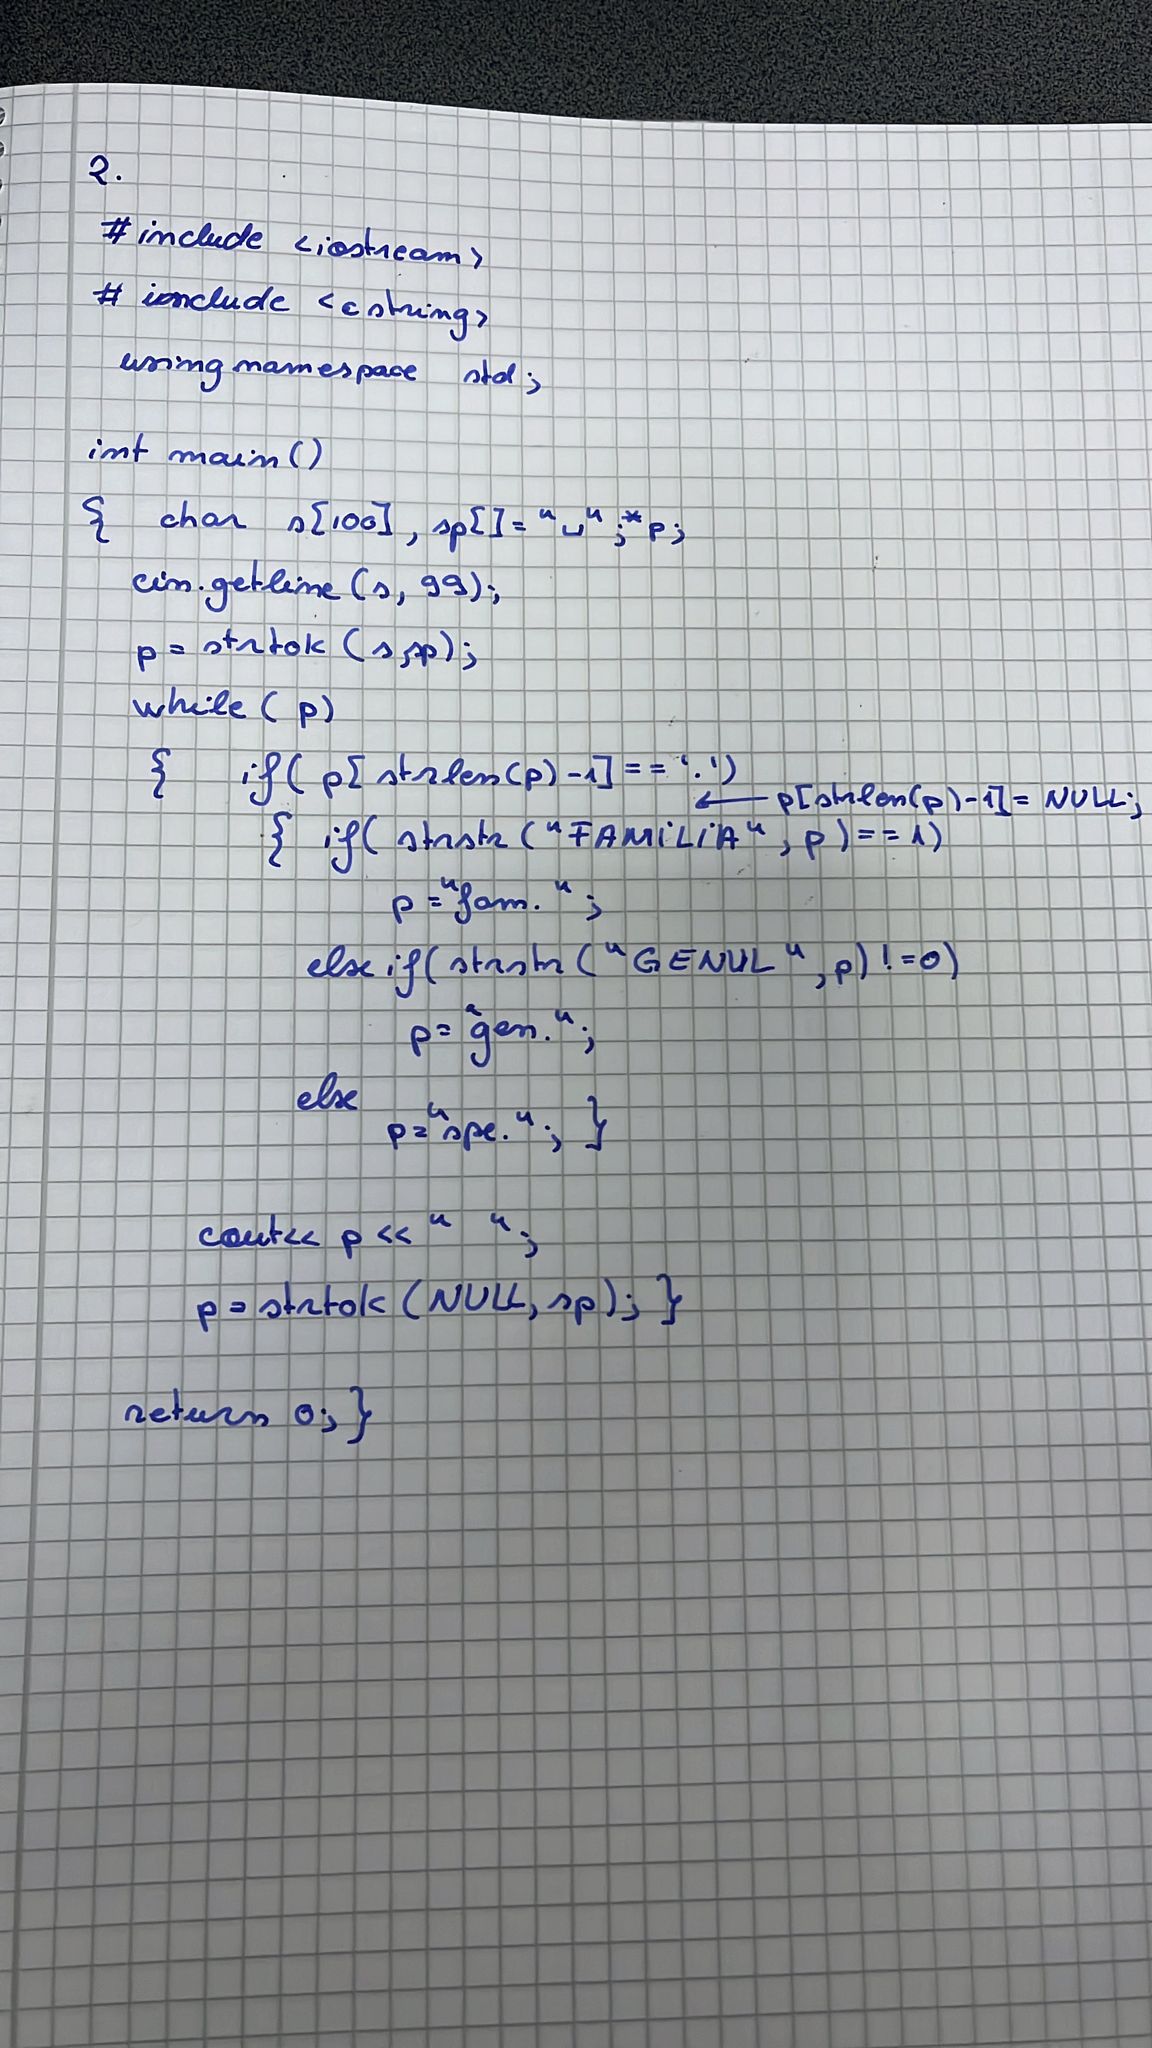 2.
#include <iostream>
#include <cstring>
using namespace std;
int main()
{ char s[100], sp[]="␣";*p;
cin.getline(s, 99);
p = strtok (s,sp);
while( p)
{ if( p[strlen(p)-1]=='.')
← p[strlen(p)-1]= NULL;
{ if( strstr("FAMILIA", p)==1)
p="fam.";
else if( strstr("GENUL",p)!=0)
p="gen.";
else
p="spe."; }
cout<< p <<" ";
p=strtok(NULL, sp); }
return 0; }